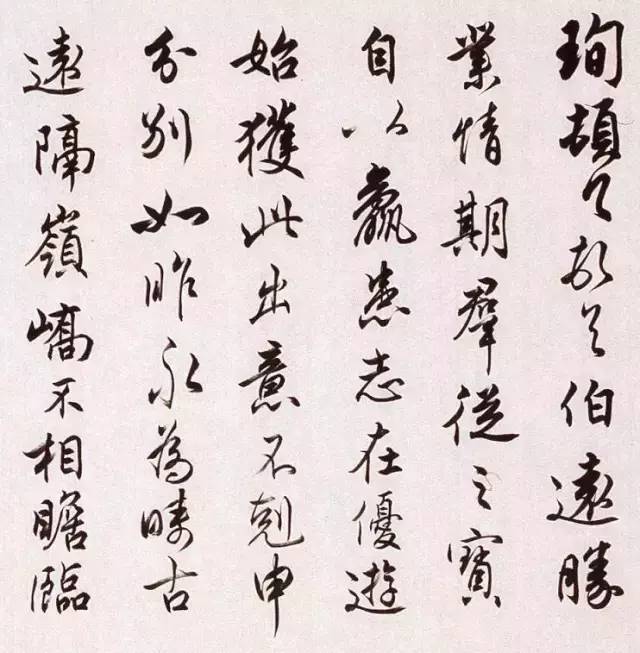 珣頓首頓首伯遠勝
業情期羣從之寶
自以羸患志在優遊
始獲此出意不剋申
分別如昨永為疇古
遠隔嶺嶠不相瞻臨